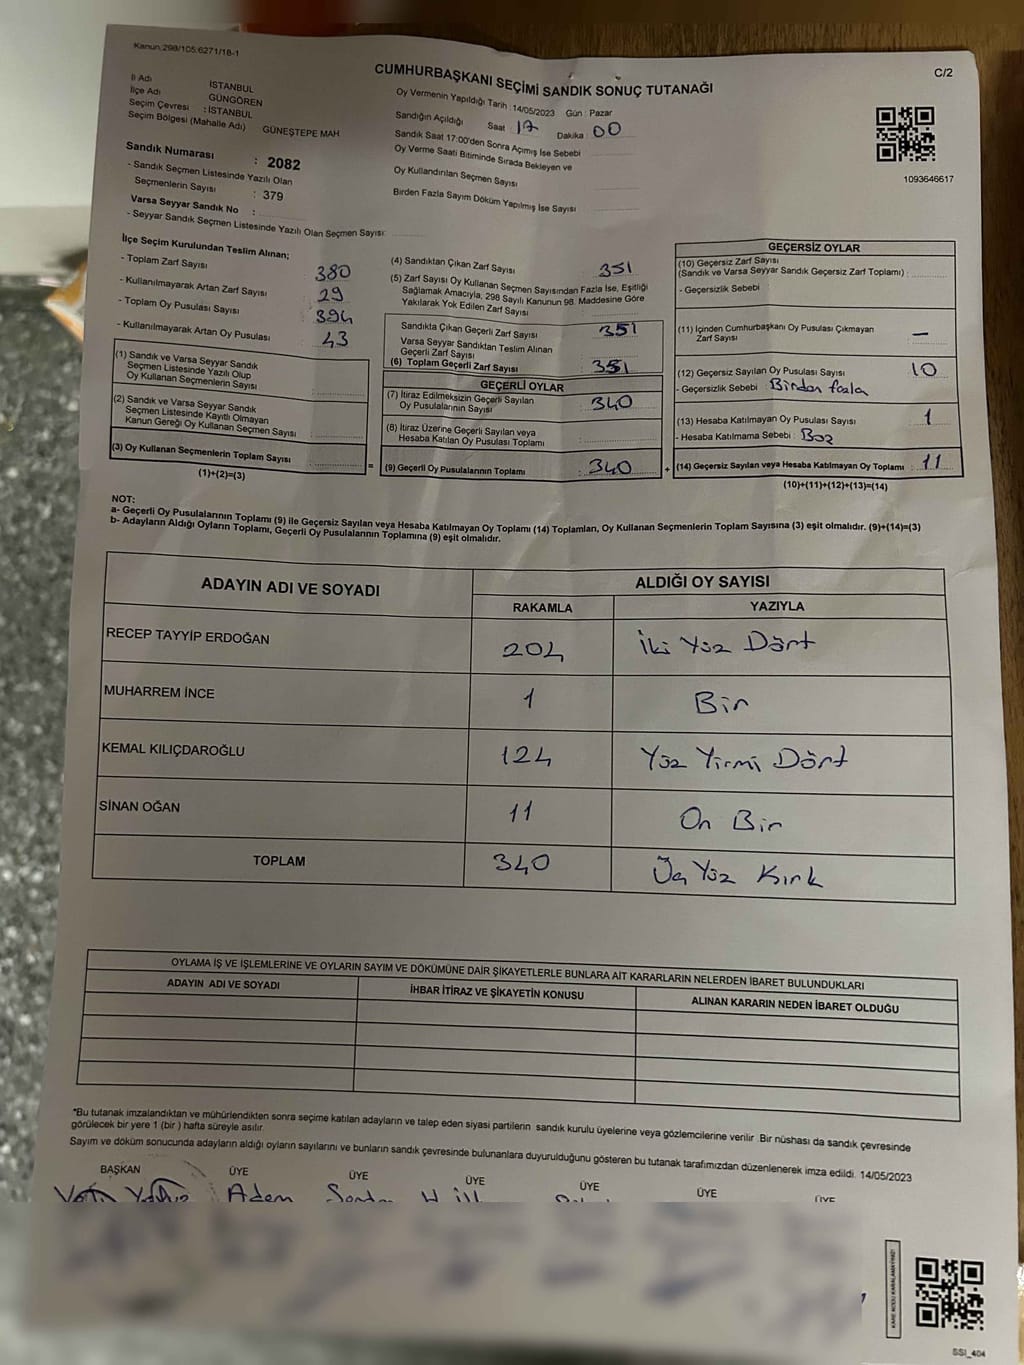 Kanun:298/105:6271/18-1
C/2
CUMHURBAŞKANI SEÇİMİ SANDIK SONUÇ TUTANAĞI
İl Adı İSTANBUL
İlçe Adı GÜNGÖREN
Seçim Çevresi : İSTANBUL
Seçim Bölgesi (Mahalle Adı) GÜNEŞTEPE MAH
Sandık Numarası : 2082
- Sandık Seçmen Listesinde Yazılı Olan
Seçmenlerin Sayısı : 379
Varsa Seyyar Sandık No :
- Seyyar Sandık Seçmen Listesinde Yazılı Olan Seçmen Sayısı:
Oy Vermenin Yapıldığı Tarih :14/05/2023 Gün : Pazar
Sandığın Açıldığı Saat 17 Dakika : 00
Sandık Saat 17:00'den Sonra Açımış İse Sebebi
Oy Verme Saati Bitiminde Sırada Bekleyen ve
Oy Kullandırılan Seçmen Sayısı
Birden Fazla Sayım Döküm Yapılmış İse Sayısı
1093646617
İlçe Seçim Kurulundan Teslim Alınan;
- Toplam Zarf Sayısı 380
- Kullanılmayarak Artan Zarf Sayısı 29
- Toplam Oy Pusulası Sayısı 394
- Kullanılmayarak Artan Oy Pusulası 43
(1) Sandık ve Varsa Seyyar Sandık
Seçmen Listesinde Yazılı Olup
Oy Kullanan Seçmenlerin Sayısı
(2) Sandık ve Varsa Seyyar Sandık
Seçmen Listesinde Kayıtlı Olmayan
Kanun Gereği Oy Kullanan Seçmen Sayısı
(3) Oy Kullanan Seçmenlerin Toplam Sayısı
(1)+(2)=(3)
(4) Sandıktan Çıkan Zarf Sayısı 351
(5) Zarf Sayısı Oy Kullanan Seçmen Sayısından Fazla İse, Eşitliği
Sağlamak Amacıyla, 298 Sayılı Kanunun 98. Maddesine Göre
Yakılarak Yok Edilen Zarf Sayısı
Sandıkta Çıkan Geçerli Zarf Sayısı : 351
Varsa Seyyar Sandıktan Teslim Alınan
Geçerli Zarf Sayısı
(6) Toplam Geçerli Zarf Sayısı : 351
GEÇERLİ OYLAR
(7) İtiraz Edilmeksizin Geçerli Sayılan
Oy Pusulalarının Sayısı : 340
(8) İtiraz Üzerine Geçerli Sayılan veya
Hesaba Katılan Oy Pusulası Toplamı
= (9) Geçerli Oy Pusulalarının Toplamı : 340 +
GEÇERSİZ OYLAR
(10) Geçersiz Zarf Sayısı
(Sandık ve Varsa Seyyar Sandık Geçersiz Zarf Toplamı) :
- Geçersizlik Sebebi
(11) İçinden Cumhurbaşkanı Oy Pusulası Çıkmayan
Zarf Sayısı —
(12) Geçersiz Sayılan Oy Pusulası Sayısı 10
- Geçersizlik Sebebi : Birden fazla
(13) Hesaba Katılmayan Oy Pusulası Sayısı 1
- Hesaba Katılmama Sebebi : Boz
(14) Geçersiz Sayılan veya Hesaba Katılmayan Oy Toplamı : 11
(10)+(11)+(12)+(13)=(14)
NOT:
a- Geçerli Oy Pusulalarının Toplamı (9) ile Geçersiz Sayılan veya Hesaba Katılmayan Oy Toplamı (14) Toplamları, Oy Kullanan Seçmenlerin Toplam Sayısına (3) eşit olmalıdır. (9)+(14)=(3)
b- Adayların Aldığı Oyların Toplamı, Geçerli Oy Pusulalarının Toplamına (9) eşit olmalıdır.
ADAYIN ADI VE SOYADI ALDIĞI OY SAYISI
RAKAMLA YAZIYLA
RECEP TAYYİP ERDOĞAN 204 İki Yüz Dört
MUHARREM İNCE 1 Bir
KEMAL KILIÇDAROĞLU 124 Yüz Yirmi Dört
SİNAN OĞAN 11 On Bir
TOPLAM 340 Üç Yüz Kırk
OYLAMA İŞ VE İŞLEMLERİNE VE OYLARIN SAYIM VE DÖKÜMÜNE DAİR ŞİKAYETLERLE BUNLARA AİT KARARLARIN NELERDEN İBARET BULUNDUKLARI
ADAYIN ADI VE SOYADI İHBAR İTİRAZ VE ŞİKAYETİN KONUSU ALINAN KARARIN NEDEN İBARET OLDUĞU
*Bu tutanak imzalandıktan ve mühürlendikten sonra seçime katılan adayların ve talep eden siyasi partilerin sandık kurulu üyelerine veya gözlemcilerine verilir .Bir nüshası da sandık çevresinde
görülecek bir yere 1 (bir ) hafta süreyle asılır.
Sayım ve döküm sonucunda adayların aldığı oyların sayılarını ve bunların sandık çevresinde bulunanlara duyurulduğunu gösteren bu tutanak tarafımızdan düzenlenerek imza edildi. 14/05/2023
BAŞKAN ÜYE ÜYE ÜYE ÜYE ÜYE ÜYE
Adem
SSI_404